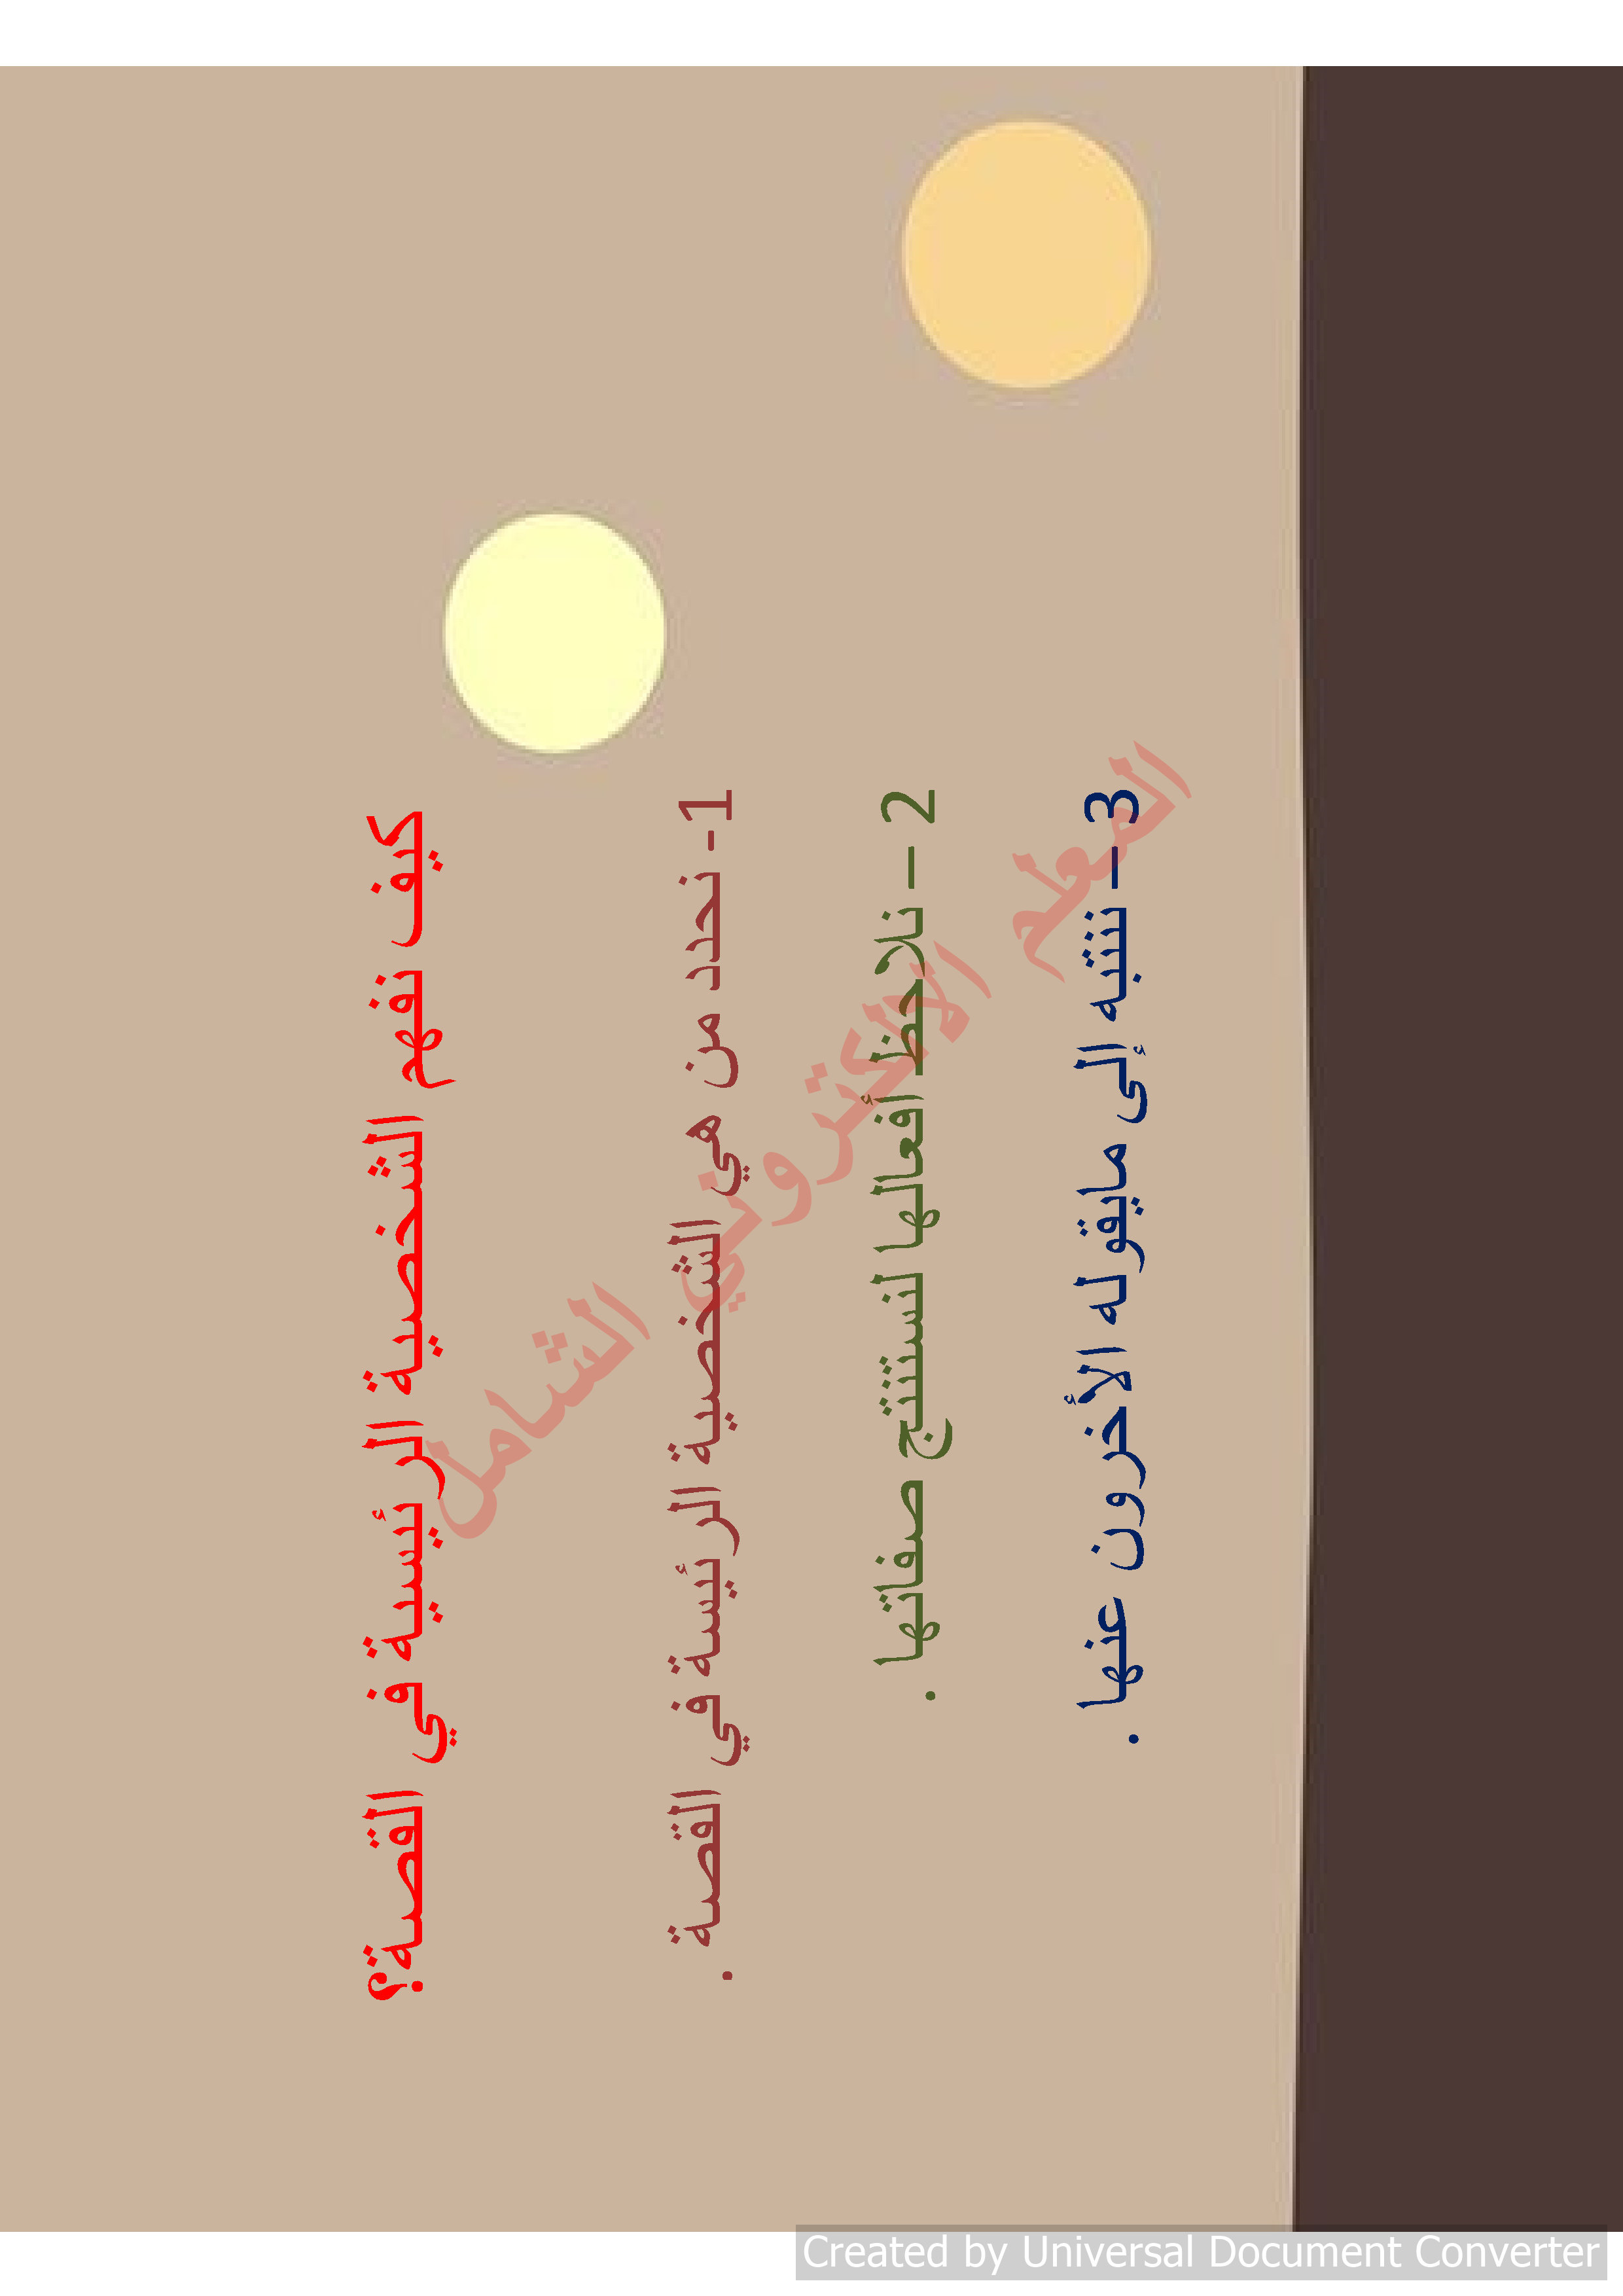 كيف نفهم الشخصية الرئيسية في القصة؟
1- نحدد من هي الشخصية الرئيسة في القصة .
2 – نلاحظ أفعالها لنستنتج صفاتها .
3 – ننتبه إلى مايقوله الأخرون عنها .
المعلم الالكتروني الشامل
Created by Universal Document Converter